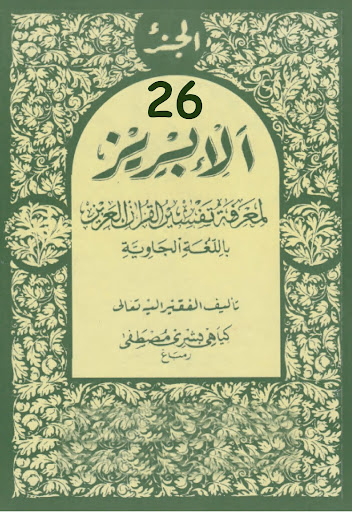 الجزء
26
الإبريز
لمعرفة تفسير القرآن العزيز
باللغة الجاوية
تأليف الفقير إليه تعالى
كياهي بشري مصطفى
رمباغ